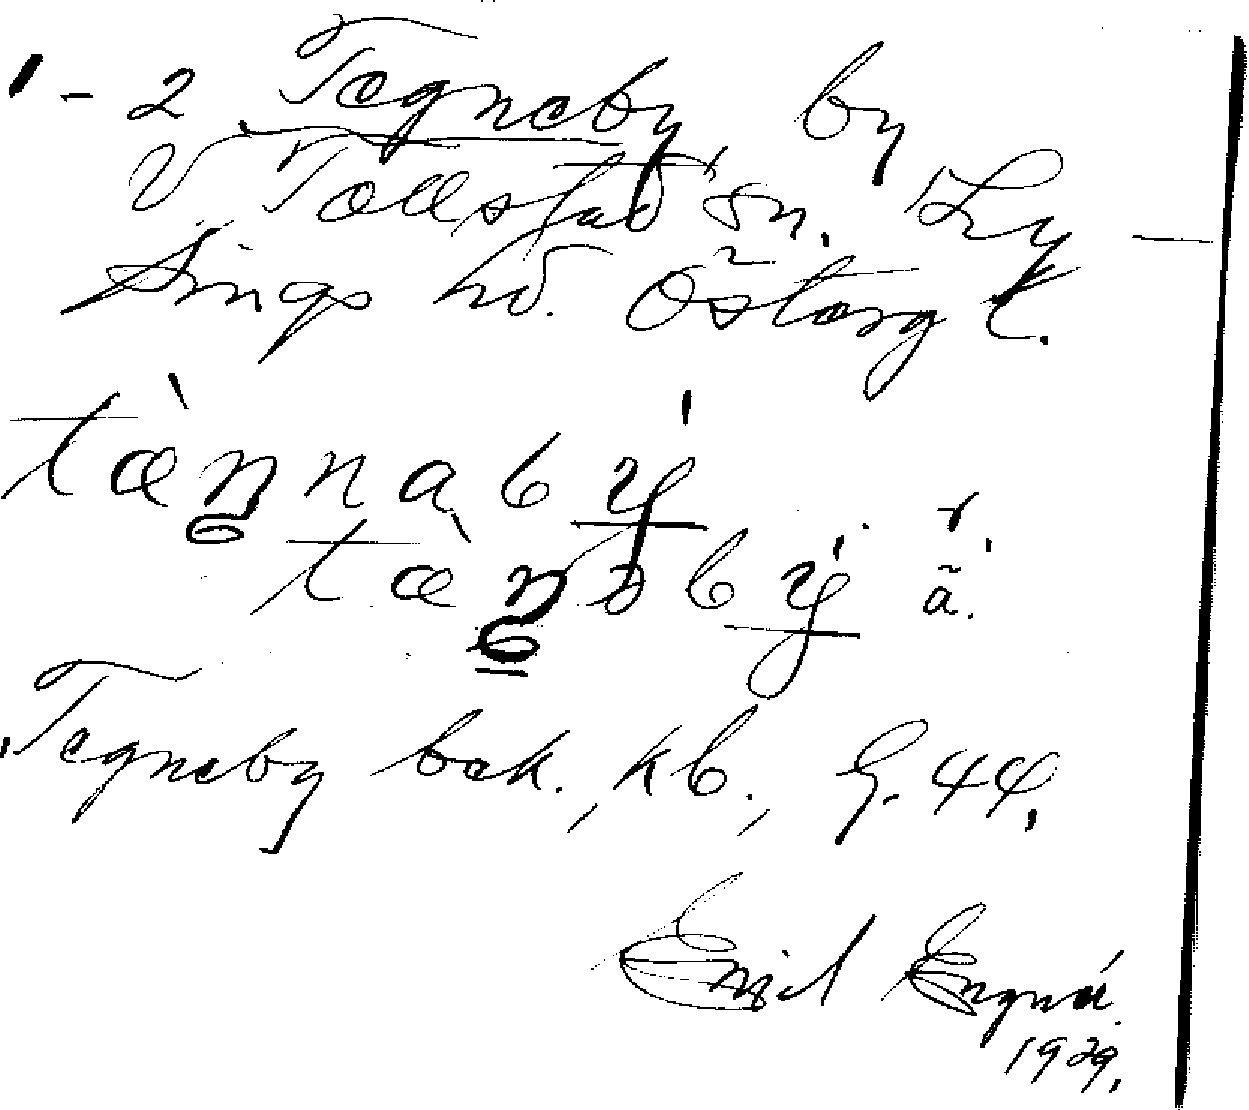 1-2 Tegneby by
V Tollstad sn. Ly-
sings hd. Östergötl.
tæ̀n̥nabý
tæ̀n̥ɔbý ä.
Tegneby bok., kb., G. 44.
Emil
1929.